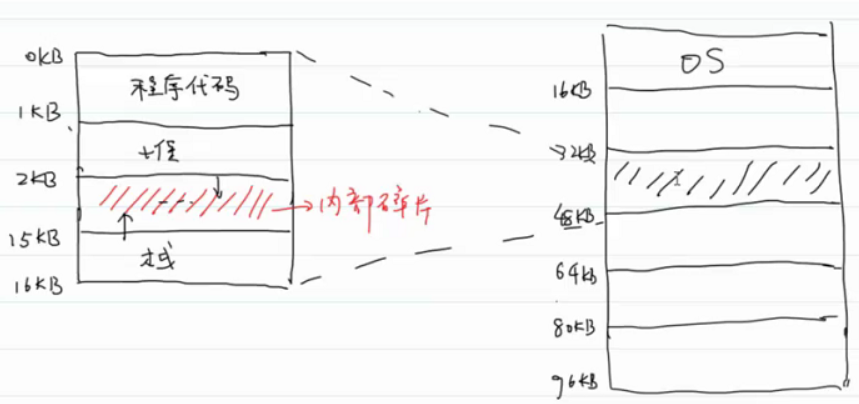 0KB
程序代码
1KB
堆
2KB
→内部碎片
15KB
栈
16KB
OS
16KB
32KB
48KB
64KB
80KB
96KB